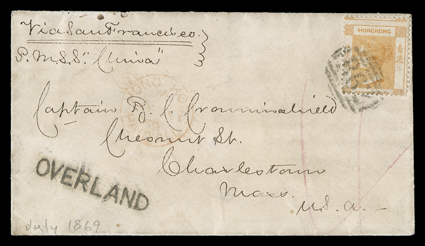 Via San Francisco
P.M.S.S. "China"
HONGKONG
Captain B. C. Crowninshield
Chesnut St.
Charlestown
Mass
U.S.A.
OVERLAND
July 1869